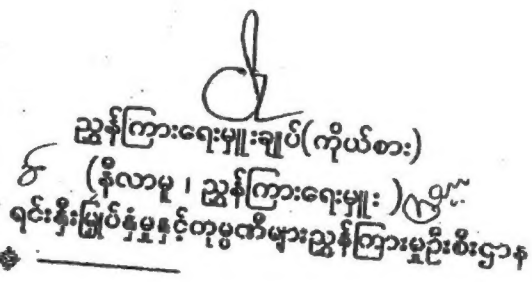 ညွှန်ကြားရေးမှူးချုပ်(ကိုယ်စား)
(နီလာမူ ၊ ညွှန်ကြားရေးမှူး )
ရင်းနှီးမြှုပ်နှံမှုနှင့်ကုမ္ပဏီများညွှန်ကြားမှုဦးစီးဌာန